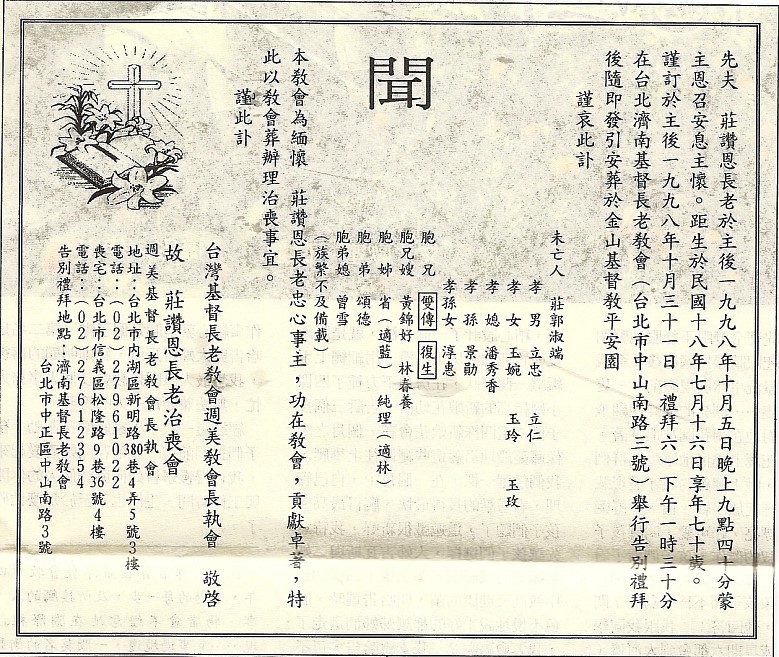 先夫　莊讚恩長老於主後一九九八年十月五日晚上九點四十分蒙
主恩召安息主懷。距生於民國十八年七月十六日享年七十歲。
謹訂於主後一九九八年十月三十一日（禮拜六）下午一時三十分
在台北濟南基督長老教會（台北市中山南路三號）舉行告別禮拜
後隨即發引安葬於金山基督教平安園
謹哀此訃
未亡人　莊郭淑端
孝男　立忠　立仁
孝女　玉婉　玉玲　玉玫
孝媳　潘秀香
孝孫　景勛
孝孫女　淳惠
胞兄　雙傳　復生
胞兄嫂　黃錦好　林春養
胞姊　省（適藍）　純理（適林）
胞弟　頌德
胞弟媳　曾雪
（族繁不及備載）
聞
本教會為緬懷　莊讚恩長老忠心事主，功在教會，貢獻卓著，特
此以教會葬辦理治喪事宜。
謹此訃
台灣基督長老教會週美教會長執會　敬啓
故　莊讚恩長老治喪會
週美基督長老教會長執會
地址：台北市內湖區新明路380巷4弄5號3樓
電話：（02）27961022
喪宅：台北市信義區松隆路9巷36號4樓
電話：（02）27612354
告別禮拜地點：濟南基督長老教會
台北市中正區中山南路3號